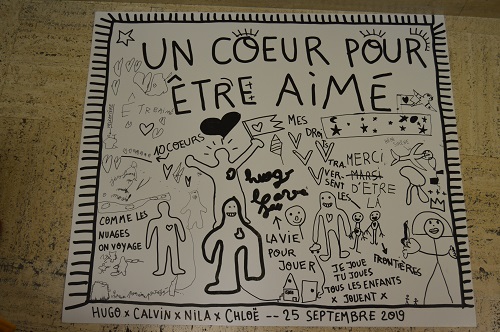 UN COEUR POUR
ÊTRE AiMÉ
10 COEURS
MES
DROITS
TRA
VER-
SENT
LES
MERCI
MARSI
D'ÊTRE
LÀ
FRONTIÈRES
hugo
COMME LES
NUAGES
ON VOYAGE
LA VIE
POUR
JOUER
JE JOUE
TU JOUES
TOUS LES ENFANTS
x JOUENT x
HUGO x CALVIN x NILA x CHLOË -- 25 SEPTEMBRE 2019